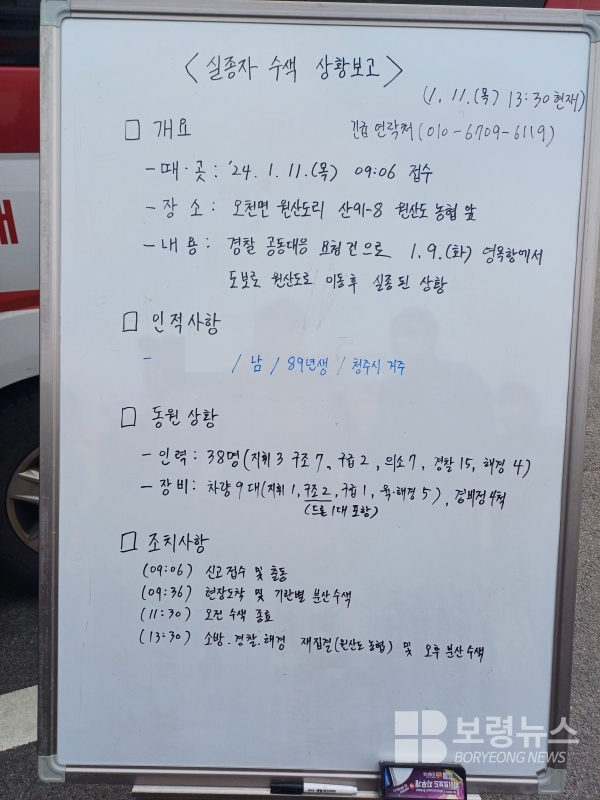 〈실종자 수색 상황보고〉
(1. 11.(목) 13:30 현재)
□ 개요
긴급 연락처(010-6709-6119)
- 때·곳 : '24. 1. 11.(목) 09:06 접수
- 장 소 : 오천면 원산도리 산91-8 원산도 농협 앞
- 내 용 : 경찰 공동대응 요청 건으로 1. 9.(화) 영목항에서
도보로 원산도로 이동후 실종된 상황
□ 인적사항
- / 남 / 89년생 / 청주시 거주
□ 동원 상황
- 인력 : 38명(지휘 3 구조 7, 구급 2, 의소 7, 경찰 15, 해경 4)
- 장비 : 차량 9대(지휘 1, 구조 2, 구급 1, 육·해경 5), 경비정 4척
(드론 1대 포함)
□ 조치사항
(09:06) 신고접수 및 출동
(09:36) 현장도착 및 기관별 분산수색
(11:30) 오전 수색 종료
(13:30) 소방·경찰·해경 재집결(원산도 농협) 및 오후 분산수색
보령뉴스
BORYEONG NEWS